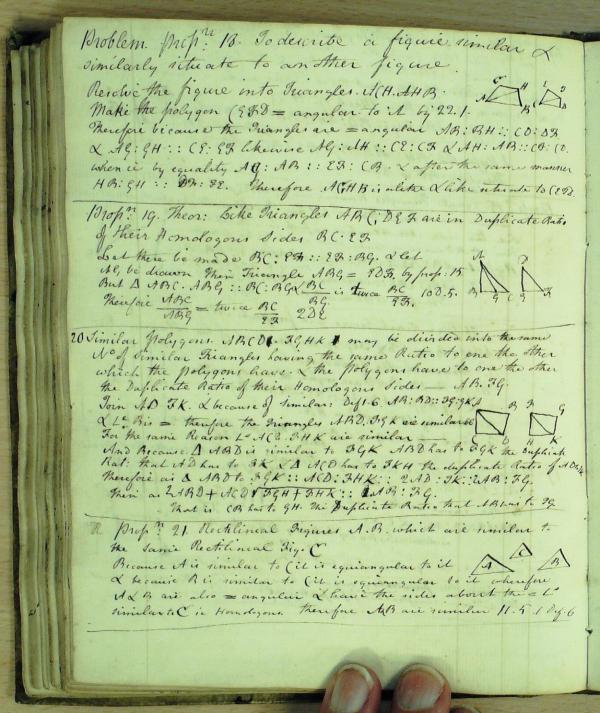 Problem. Prop.n 18. To describe a figure similar &
similarly situate to another figure.
Resolve the figure into Triangles. AGH. AHB.
Make the polygon CEFD = angular to A by 22.1.
Therefore because the Triangles are = angular AB:BH :: CD:DF
& AG:GH :: CE:EF likewise AG:AH :: CE:CF & AH:AB::CF:CD.
when ce by equality AG:AB :: EF:CB. & after the same manner
HB:GH :: DF:FE. Therefore AGHB is alike & like situate to CEFD.
Prop.n 19. Theor: Like Triangles ABC; DEF are in Duplicate Ratio
of their Homologous Sides BC. EF
Let there be made BC:EF :: EF:BG. & let
AG, be drawn Then Triangle ABG = EDF. by prop. 15
But Δ ABC. ABG :: BC:BG & BC/BG is twice BC/EF. 10D.5.
Therefore ABC/ABG = twice BC/EF 2DE
20 Similar Polygons. ABCD. FGHK may be divided into the same
No of Similar Triangles having the same Ratio to one the other
which the polygons have. & the polygons have to one the other
the Duplicate Ratio of their Homologous Sides — AB. FG.
Join AD FK. & because of similar: Def. 6. AB:BD::FG:GK
& Ls B is = therefore the Triangles ABD. FGK are similar 6.6
For the same Reason Ls ACD. FHK are similar
And Because Δ ABD is similar to FGK ABD has to FGK the Duplicate
Rat: that AD has to FK & Δ ACD has to FKH the duplicate Ratio of AD
Therefore as Δ ABD to FGK :: ACD:FHK :: 2AD:FK::2AB:FG.
Then as ABD+ACD FGH+FHK :: 2AB:FG.
That is CB has to GH. The Duplicate Ratio that AB has to FG
Prop.n 21. Rectilineal Figures A.B. which are similar to
the same Rectilineal Fig. C
Because A is similar to C it is equiangular to it
& because B is similar to C it is equiangular to it wherefore
A & B are also = angular & have the sides about the = Ls
similar to C in Homologous. therefore AB are similar 11.5. 1 Def. 6